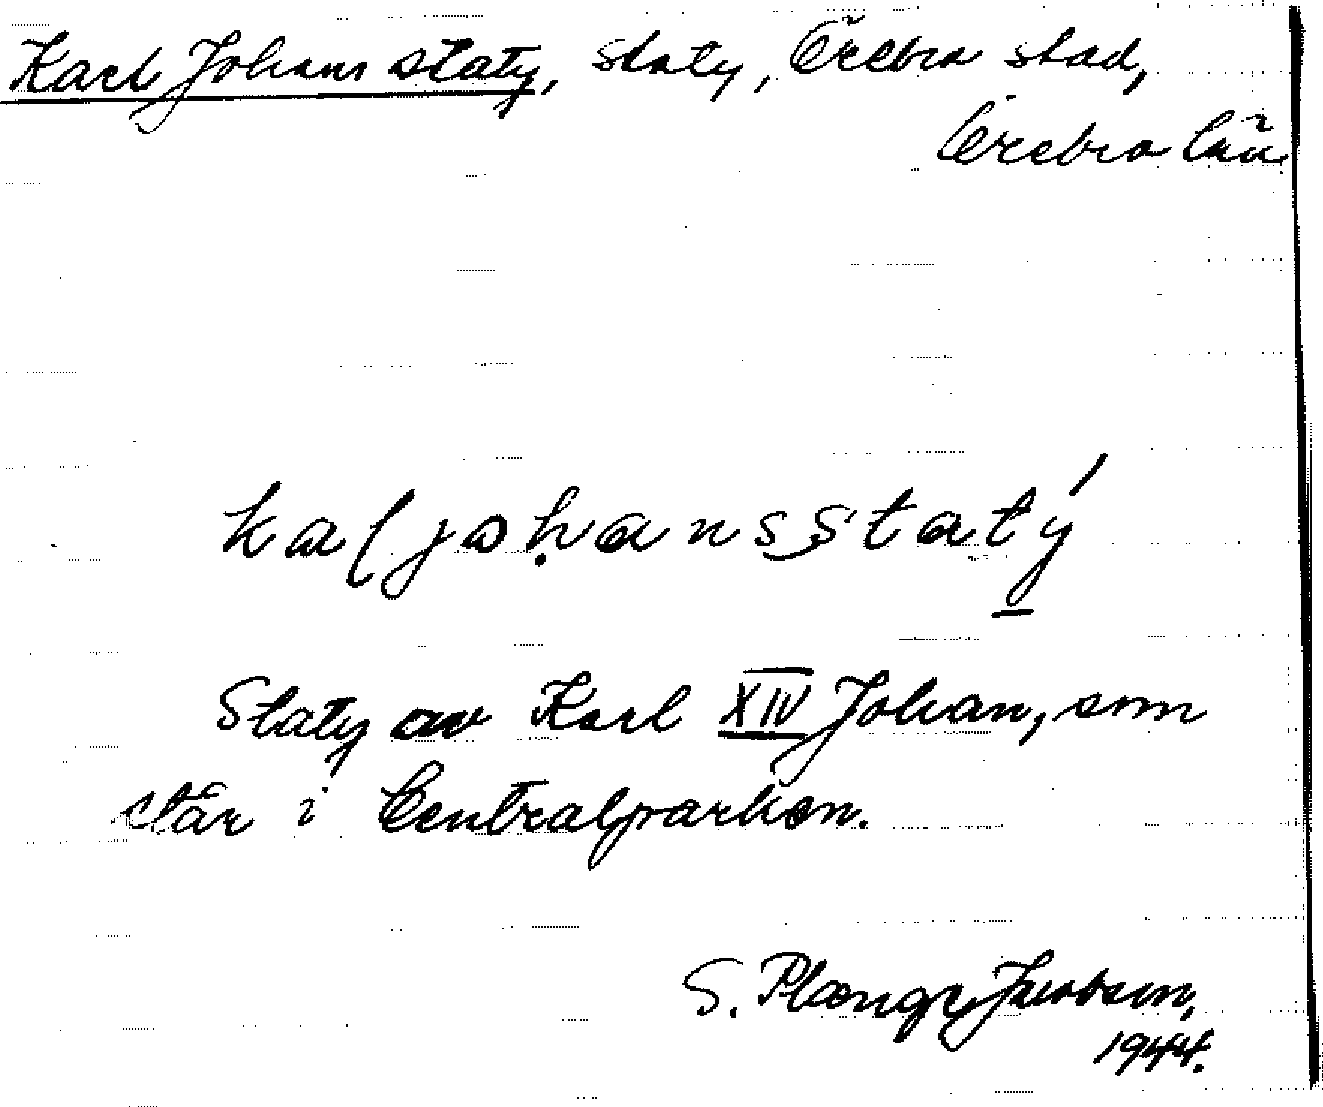 Karl Johans staty, staty, Örebro stad,
Örebro län
kaljohansstatý
Staty av Karl XIV Johan, som
står i Centralparken.
S. Plænge Jacobsen,
1944.